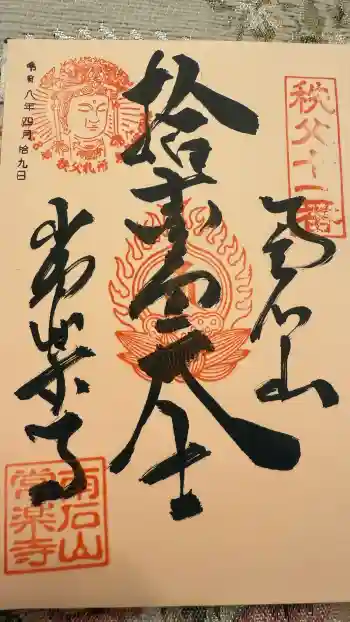 秩父十一番
南石山
拾壹面大士
秩父札所
令和八年四月拾九日
常楽寺
南石山
常楽寺